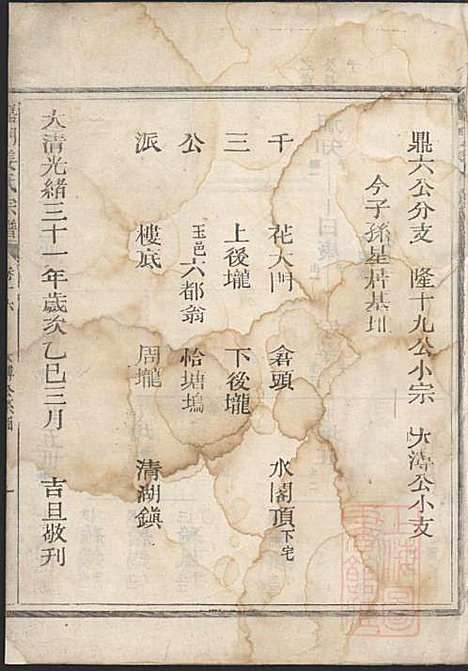 鼎六公分支 隆十九公小宗 大濤公小支
今子孫星居基圳
千 花大門 倉頭 水閣頂下宅
三 上後壠 下後壠
公 玉邑六都翁 恰塘塢
派 樓底 周壠 清湖鎮
大清光緒三十一年歲次乙巳三月 吉旦敬刊
氏宗譜